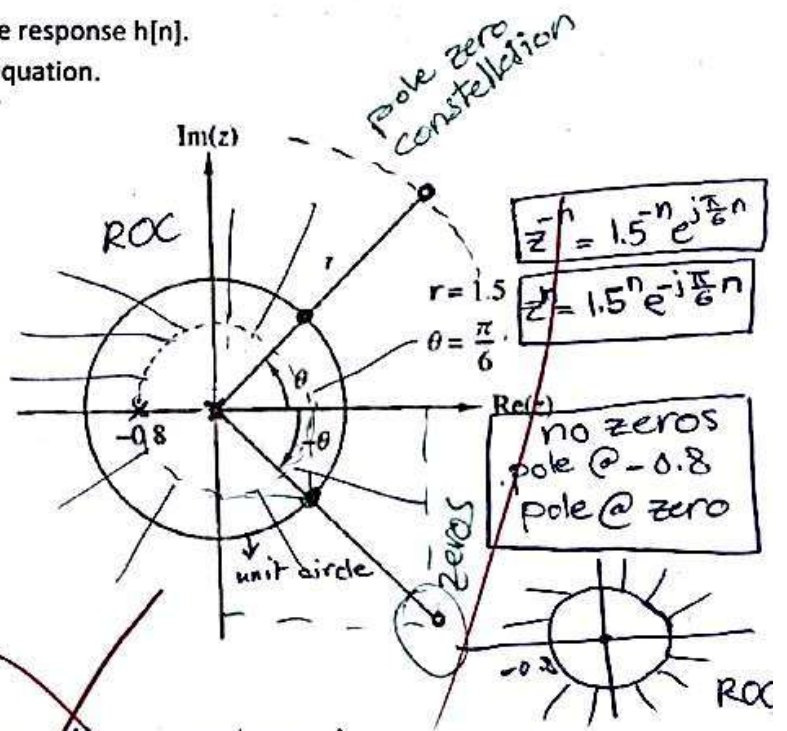 e response h[n].
quation.
pole zero
constellation
Im(z)
ROC
r
r = 1.5
θ = π/6
θ
-θ
Re(z)
-0.8
unit circle
zeros
z^-n = 1.5^-n e^jπ/6 n
z^n = 1.5^n e^-jπ/6 n
no zeros
pole @ -0.8
pole @ zero
-0.8
ROC